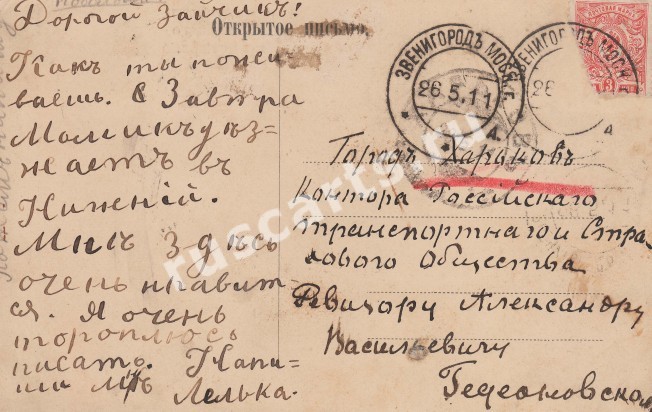 Дорогой Зайчикъ!
Открытое письмо.
Какъ ты пожи=
ваешь. Завтра
Мамикъ уѣз=
жаетъ въ
Нижній.
Мнѣ здѣсь
очень нравит=
ся. Я очень
тороплюсь
писать. Напи=
ши мнѣ
Лелька.
ЗВЕНИГОРОДЪ МОСК. Г.
26.5.11
ЗВЕНИГОРОДЪ МОСК.
26
Городъ Харьковъ
Контора Россійскаго
транспортнаго и Стра=
ховаго Общества
Ревизору Александру
Васильевичу
Гедеоновско
ruscarts.ru